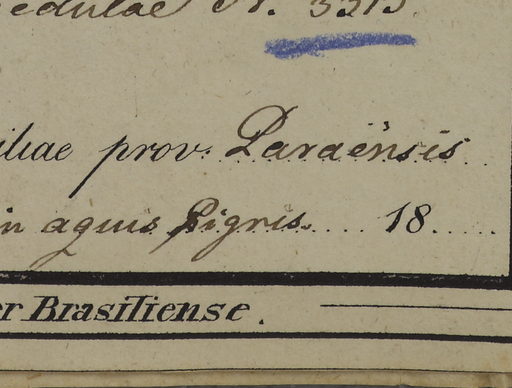 edulae N. 3313.
iliae prov: Paraënsis
in aquis pigris. 18
er Brasiliense.